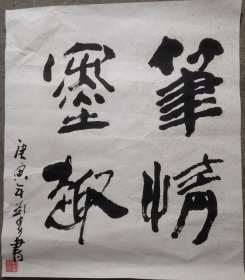 筆情
墨趣
庚寅年
書